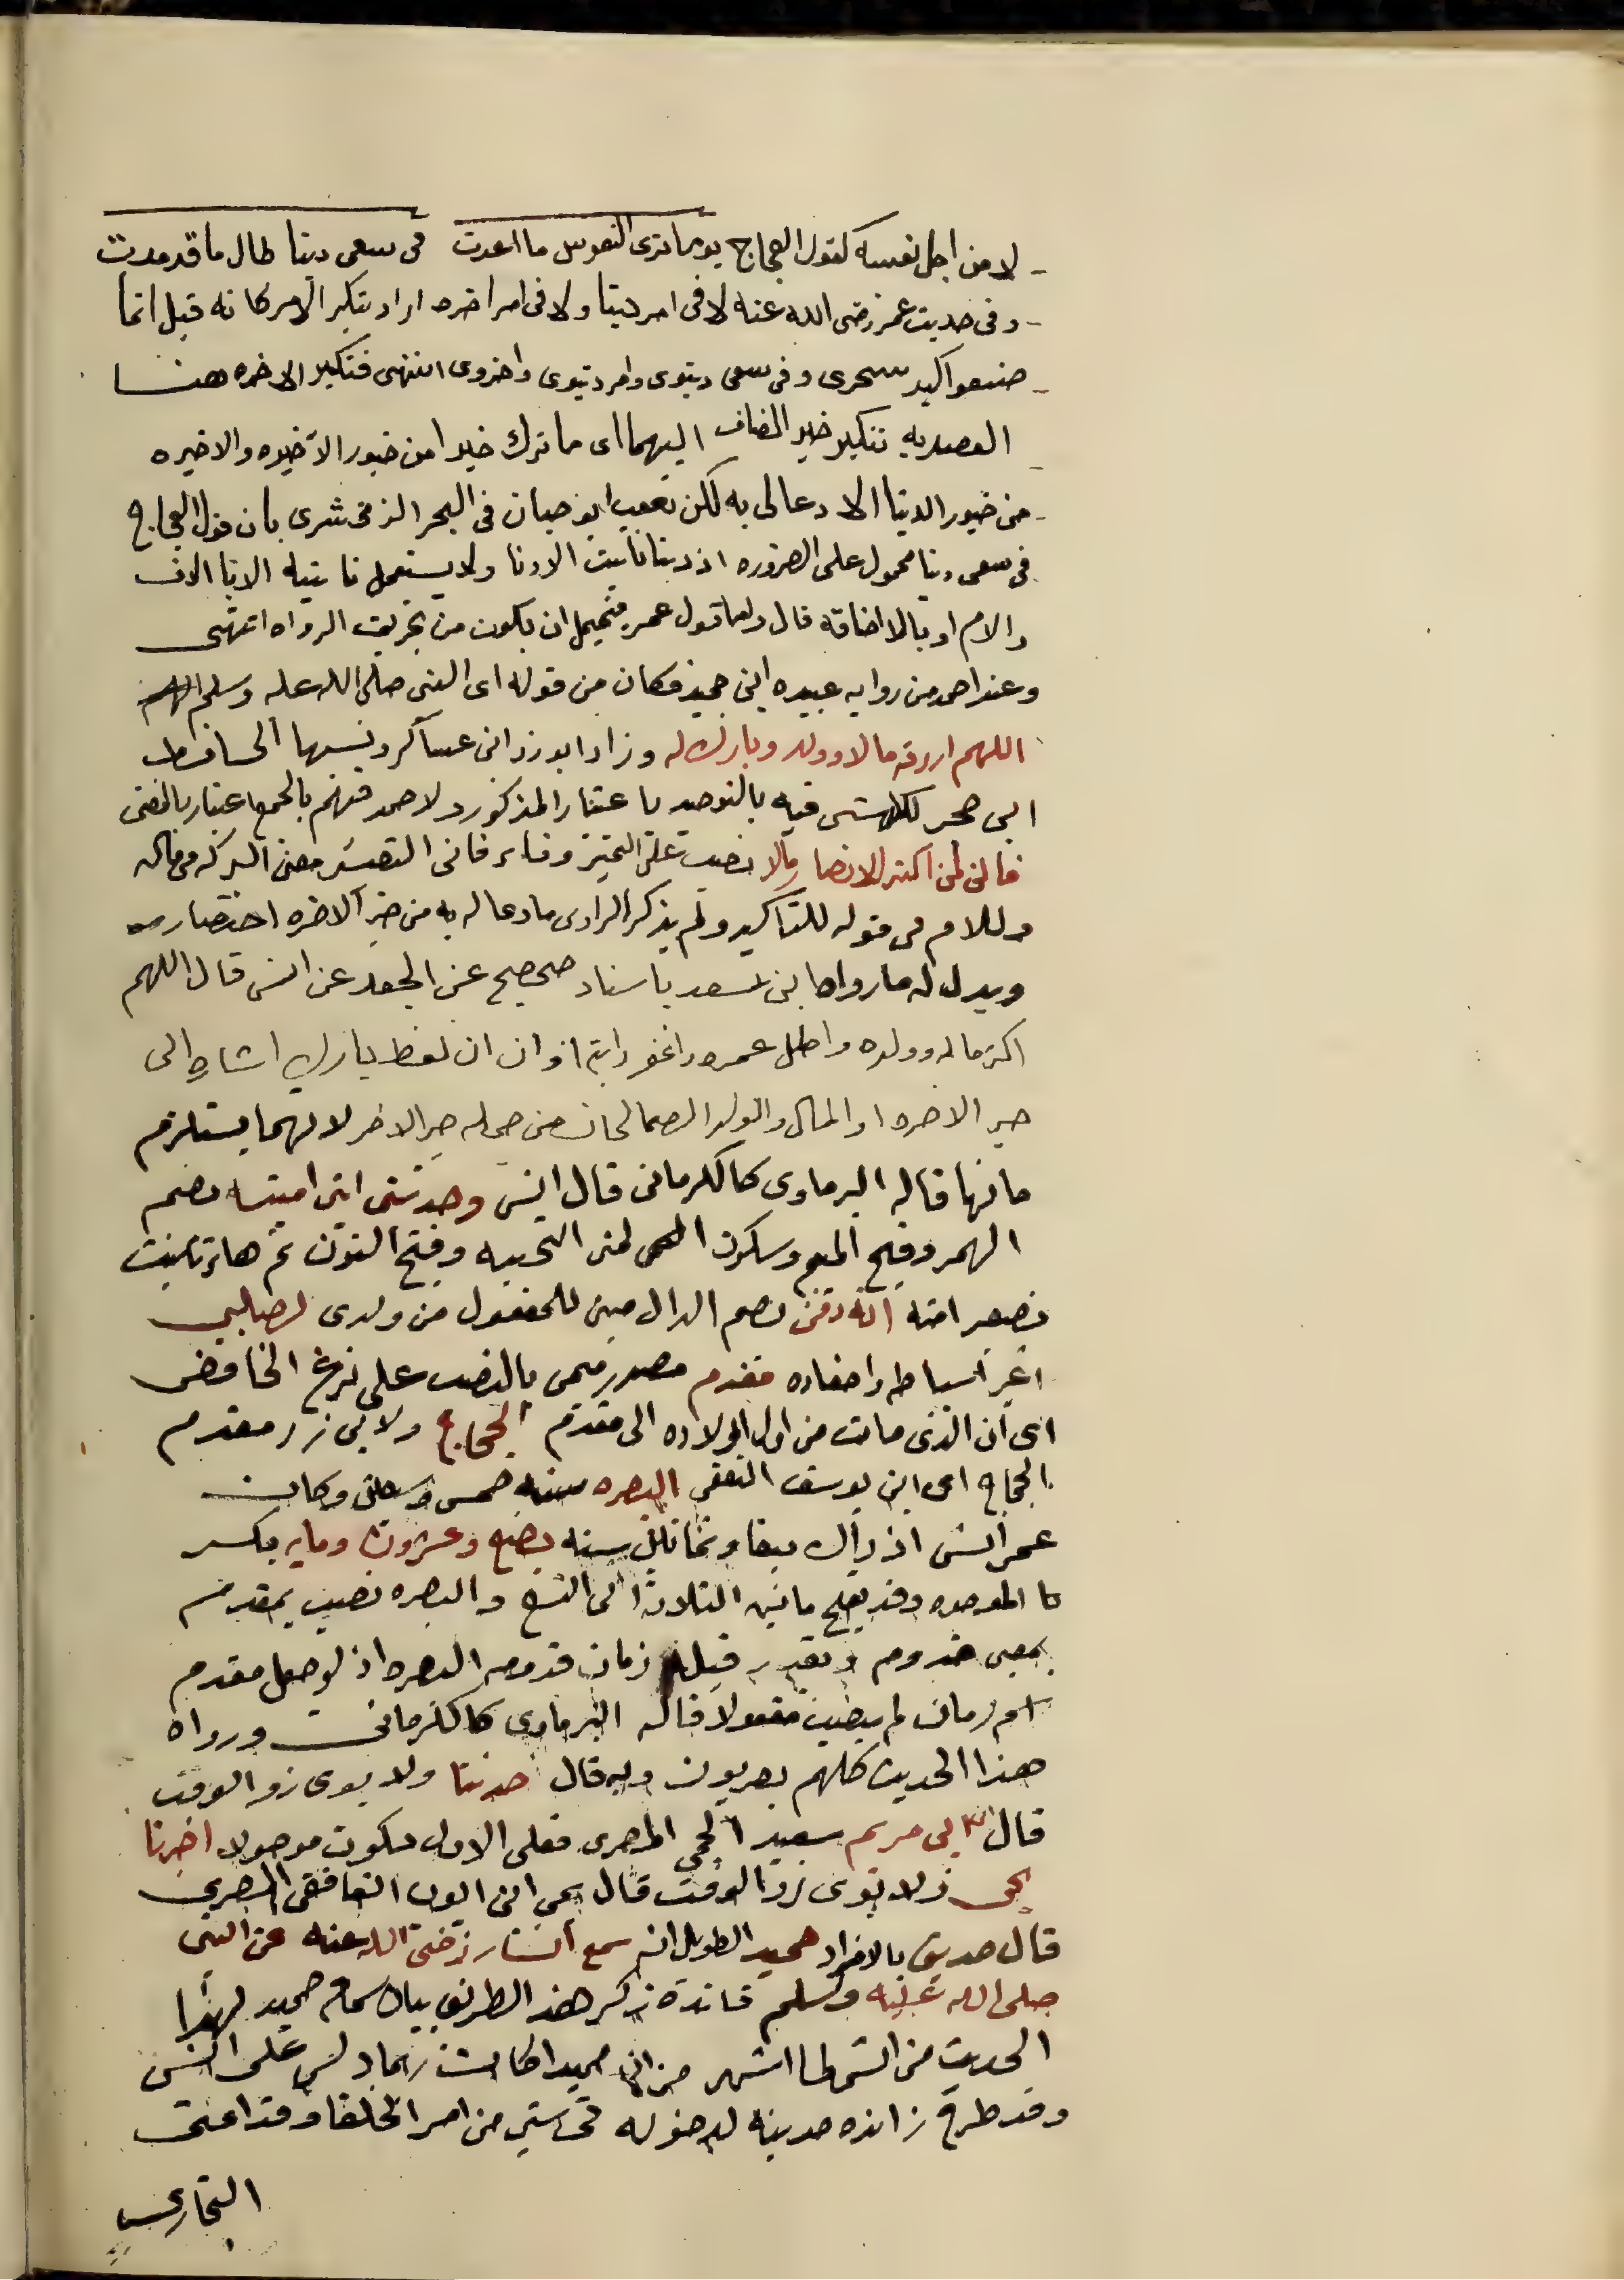 لا من اجل نفسه كقول العجاج يوما ترى النفوس ما اعدت في سعى دينا طال ما قد مدت
وفى حديث عمر رضى الله عنه لا فى امر دينا ولا فى امر اخره اراد بتكير الامر كانه قيل انما
صنعوا كيد سحرى وفى سعى دينوى وامر دينوى واخروى انتهى فتنكير الاخره هنا
القصد به تنكير خير المضاف اليهما اى ما ترك خيرا من خيور الآخيره والاخيره
من خيور الدينا الا دعا لى به لكن تعقب ابو حيان فى البحر الزمخشرى بان قول العجاج
فى سعى دينا محمول على الضروره اذ دينا تانيث الادنا ولا يستعمل تانيثه الا بالالف
والام او بالاضافه قال واما قول عمر فيحتمل ان يكون من تحريف الرواه انتهى
وعند احمد من روايه عبيده ابن حميد فكان من قوله اى النبى صلى الله عليه وسلم اللهم
اللهم ارزقه مالا وولد وبارك له وزاد ابو ذر ابن عساكر ونسبها الحافظ
ابن حجر للكشميهنى فيه بالتوحيد باعتبار المذكور ولاحمد فيهم بالجمع اعتبار بالمعنى
فانى لمن اكثر الانصار مالا نصب على التميز وفاء فانى التفسير معنى البركه فى ماله
واللام فى قوله للتاكيد ولم يذكر الراوى ما دعا له به من خير الاخره اختصار
ويدل له ما رواه ابن سعد باسناد صحيح عن الجعد عن انس قال اللهم
اكثر ماله وولده واطل عمره واغفر ذنبه او ان ان لفظ بارك اشاره الى
خير الاخره او المال والولد الصالحان من جمله خير الاخر لانهما يستلزم
مانها قاله البرماوى كالكرمانى قال انس وحدثتنى ابنتى امينه بضم
الهمز وفتح الميم وسكون التحتيه وفتح النون ثم هاء تانيث
تصغير امنه انه دفن بضم الدال مبنى للمفعول من ولدى لصلبى
اى غير اسباطه واحفاده مقدم مصدر ميمى بالنصب على نزع الخافض
اى ان الذى مات من اول اولاده الى مقدم الحجاج ولابى ذر مقدم
الحجاج اى ابن يوسف الثقفى البصره سنه خمس وسبعين وكان
عمر انس اذ ذاك نيفا وثمانين سنه بضع وعشرون ومايه بكسر
با الموحده وقد يفتح ما بين الثلاث الى التسع والبصره نصب بمقدم
بمعنى قدوم وتقدير قبله زمان قدومه البصره اذ لو جعل مقدم
اسم زمان لم ينصب مفعولا قاله البرماوى كالكرمانى ورواه
هذا الحديث كلهم بصريون وبه قال حدثنا ولابوى ذر والوقت
قال ابن ابى مريم سعيد الجمحى المصرى فعلى الاول يكون موصولا اخبرنا
يحى ولابوى ذر والوقت قال يحى ابن ايوب الغافقى المصرى
قال حدثنى بالافراد حميد الطويل انه سمع انسا رضى الله عنه عن النبى
صلى الله عليه وسلم فائدة ذكر هذا الطريق بيان سماع حميد لهذا
الحديث من انس لما اشتهر من ان حميدا كان ربما دلس على انس
وقد طرح زائده حديثه لدخوله فى شى من امر الخلفا وقد اعتنى
البخارى